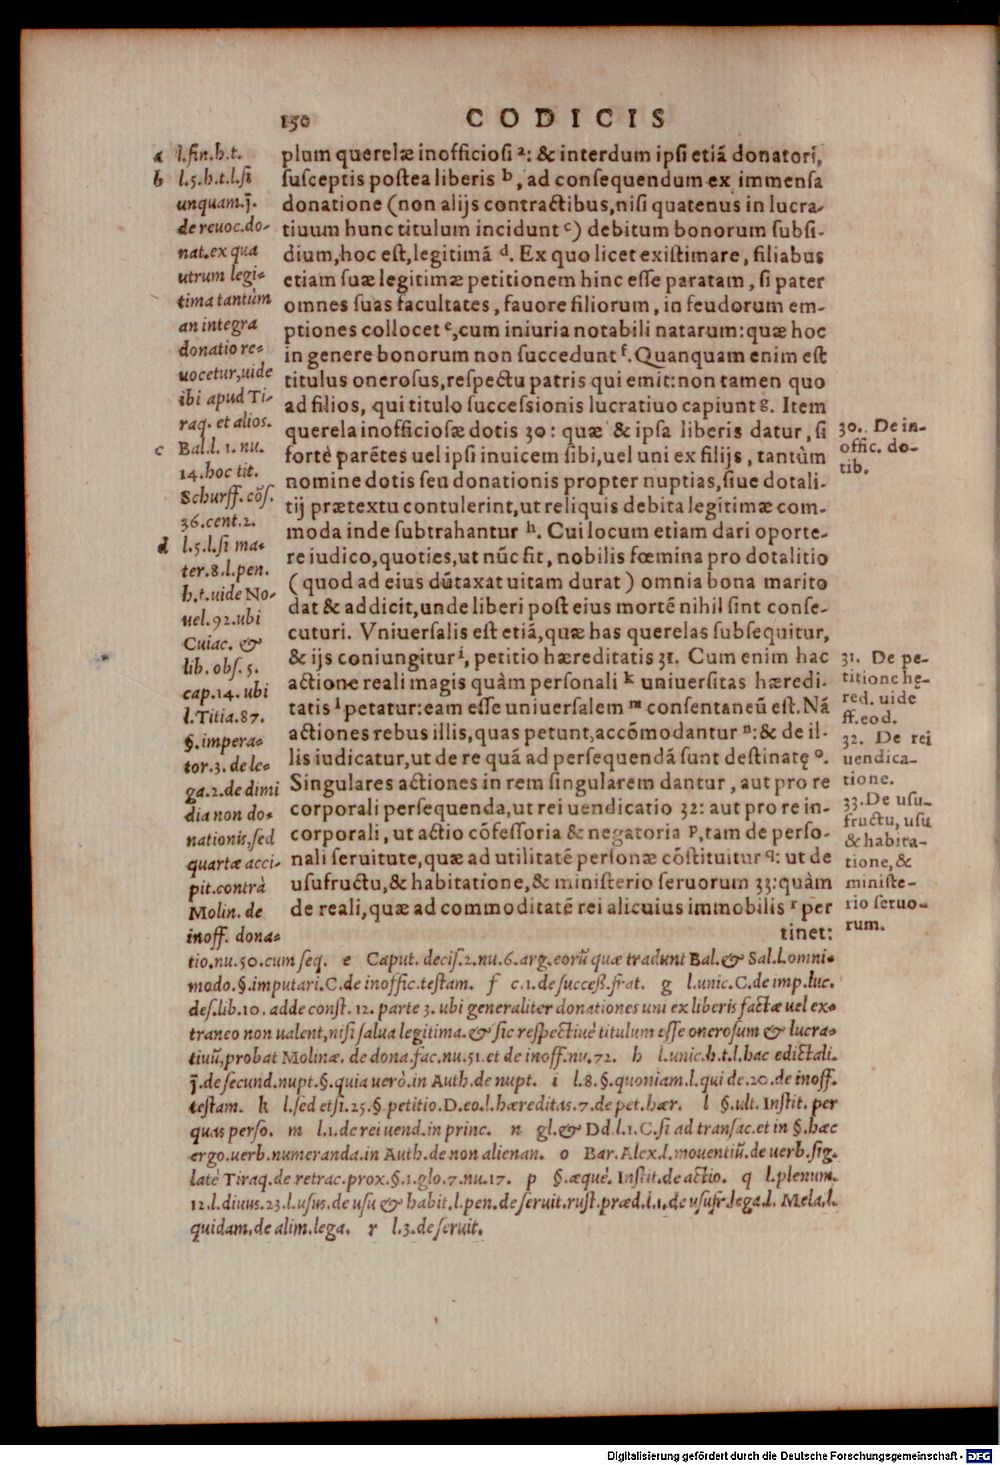 150 CODICIS
plum querelæ inofficiosi ᵃ: & interdum ipsi etiã donatori,
susceptis postea liberis ᵇ, ad consequendum ex immensa
donatione (non alijs contractibus, nisi quatenus in lucra-
tiuum hunc titulum incidunt ᶜ) debitum bonorum subsi-
dium, hoc est, legitimã ᵈ. Ex quo licet existimare, filiabus
etiam suæ legitimæ petitionem hinc esse paratam, si pater
omnes suas facultates, fauore filiorum, in feudorum em-
ptiones collocet ᵉ, cum iniuria notabili natarum: quæ hoc
in genere bonorum non succedunt ᶠ. Quanquam enim est
titulus onerosus, respectu patris qui emit: non tamen quo
ad filios, qui titulo successionis lucratiuo capiunt ᵍ. Item
querela inofficiosæ dotis 30: quæ & ipsa liberis datur, si
fortè parẽtes uel ipsi inuicem sibi, uel uni ex filijs, tantùm
nomine dotis seu donationis propter nuptias, siue dotali-
tij prætextu contulerint, ut reliquis debita legitimæ com-
moda inde subtrahantur ʰ. Cui locum etiam dari oporte-
re iudico, quoties, ut nũc fit, nobilis fœmina pro dotalitio
(quod ad eius dũtaxat uitam durat) omnia bona marito
dat & addicit, unde liberi post eius mortẽ nihil sint conse-
cuturi. Vniuersalis est etiã, quæ has querelas subsequitur,
& ijs coniungitur ⁱ, petitio hæreditatis 31. Cum enim hac
actione reali magis quàm personali ᵏ uniuersitas hæredi-
tatis ˡ petatur: eam esse uniuersalem ᵐ consentaneũ est. Nã
actiones rebus illis, quas petunt, accõmodantur ⁿ: & de il-
lis iudicatur, ut de re quã ad persequendã sunt destinatę ᵒ.
Singulares actiones in rem singularem dantur, aut pro re
corporali persequenda, ut rei uendicatio 32: aut pro re in-
corporali, ut actio cõfessoria & negatoria ᵖ, tam de perso-
nali seruitute, quæ ad utilitatẽ personæ cõstituitur ᑫ: ut de
usufructu, & habitatione, & ministerio seruorum 33: quàm
de reali, quæ ad commoditatẽ rei alicuius immobilis ʳ per
tinet:
a l.fin.h.t.
b l.5.h.t.l.si
unquam.j̃.
de reuoc.do-
nat.ex qua
utrum legi-
tima tantùm
an integra
donatio re-
uocetur, uide
ibi apud Ti-
raq. et alios.
c Bal.l. 1. nu.
14. hoc tit.
Schurff. cõs.
36. cent. 2.
d l.5.l.si ma-
ter.8.l.pen.
h.t.uide No-
uel.92.ubi
Cuiac. &
lib. obs. 5.
cap.14. ubi
l.Titia.87.
§. impera-
tor.3. de le-
ga.2.de dimi
dia non do-
nationis, sed
quartæ acci-
pit.contrà
Molin. de
inoff. dona-
tio.nu.50.cum seq. e Caput. decis.2.nu.6.arg.eorũ quæ tradunt Bal.& Sal.l.omni-
modo.§.imputari.C.de inoffic.testam. f c.1.de success.frat. g l.unic.C.de imp.luc.
des.lib.10. adde const. 12. parte 3. ubi generaliter donationes uni ex liberis factæ uel ex-
traneo non ualent, nisi salua legitima. & sic respectiuè titulum esse onerosum & lucra-
tiuũ, probat Molinæ. de dona.fac.nu.51.et de inoff.nu.72. h l.unic.h.t.l.hac edictali.
j̃.de secund.nupt.§.quia uerò.in Auth.de nupt. i l.8.§.quoniam.l.qui de.20.de inoff.
testam. k l.sed etsi.25.§.petitio.D.eo.l.hæreditas.7.de pet.hær. l §.ult. Instit. per
quas perso. m l.1.de rei uend.in princ. n gl.& Dd.l.1.C.si ad transac.et in §.hæc
ergo.uerb.numeranda.in Auth.de non alienan. o Bar.Alex.l.mouentiũ.de uerb.sig.
latè Tiraq.de retrac.prox.§.1.glo.7.nu.17. p §.æquè. Instit.de actio. q l.plenum.
12.l.diuus.23.l.usus.de usu & habit.l.pen.de seruit.rust.præd.l.1.de ususr.lega.l. Mela.l.
quidam.de alim.lega. r l.3.de seruit.
30. De in-
offic. do-
tib.
31. De pe-
titione hę-
red. uide
ff. eod.
32. De rei
uendica-
tione.
33. De usu-
fructu, usu
& habita-
tione, &
ministe-
rio seruo-
rum.
Digitalisierung gefördert durch die Deutsche Forschungsgemeinschaft - DFG